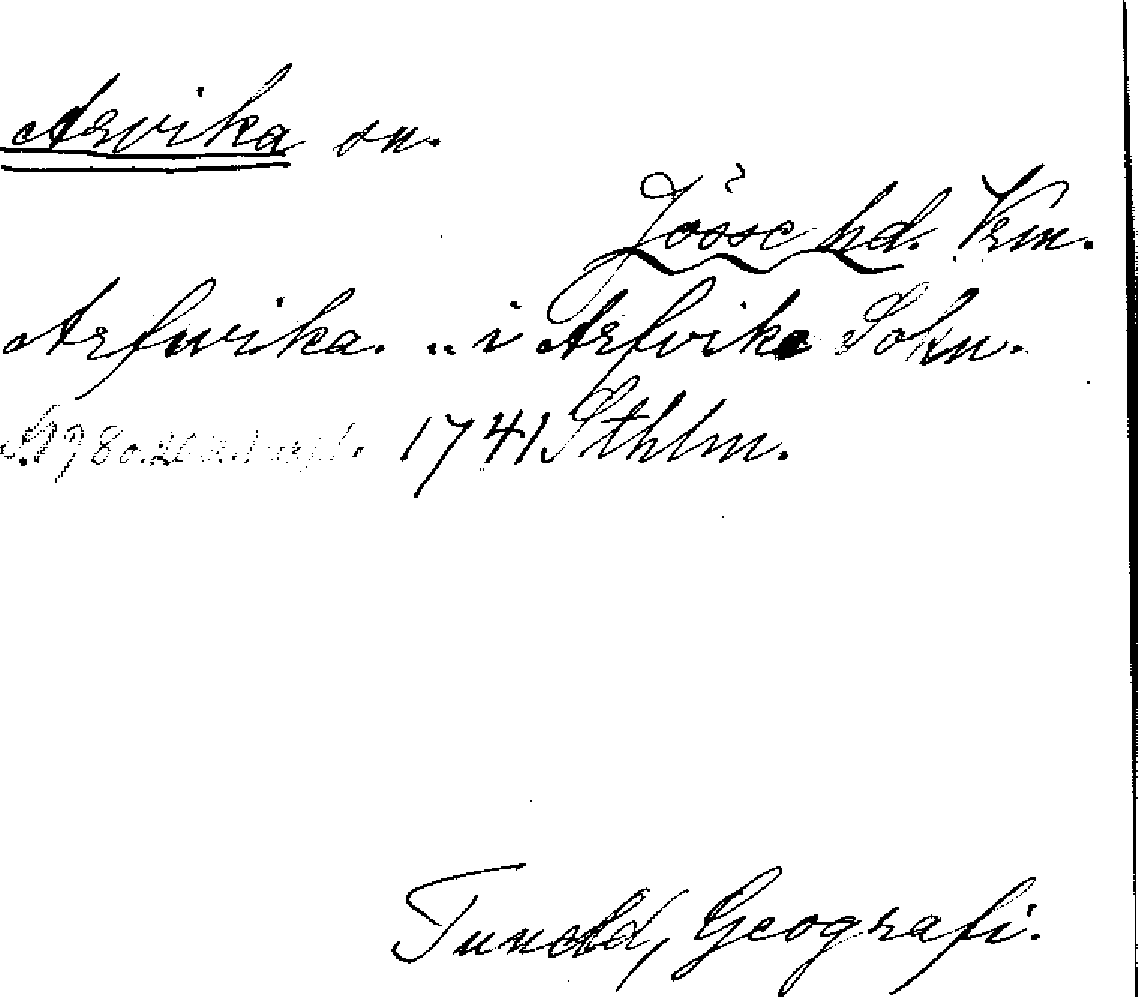 Arvika sn.
Jösse hd. Vrm.
Arfwika. .. i Arfvika Sokn.
1741 Sthlm.
Tuneld, Geografi.